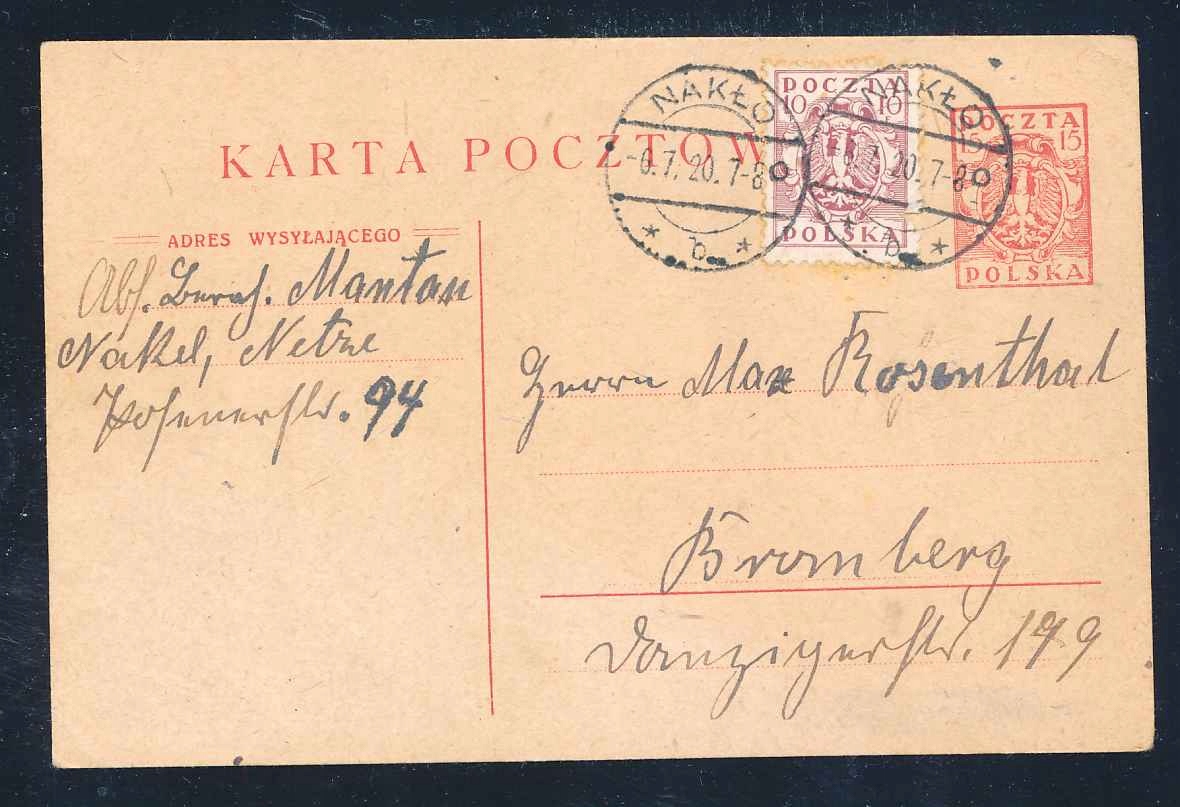 KARTA POCZTOW
NAKŁO
-6.7.20.7-8
* b *
POCZTA
10 10
POLSKA
NAKŁO
-6.7.20.7-8
* b *
POCZTA
15 15
POLSKA
ADRES WYSYŁAJĄCEGO
Abs. Mantau
Nakel, Netze
Posenerstr. 94
Herrn Max Rosenthal
Bromberg
Danzigerstr. 149